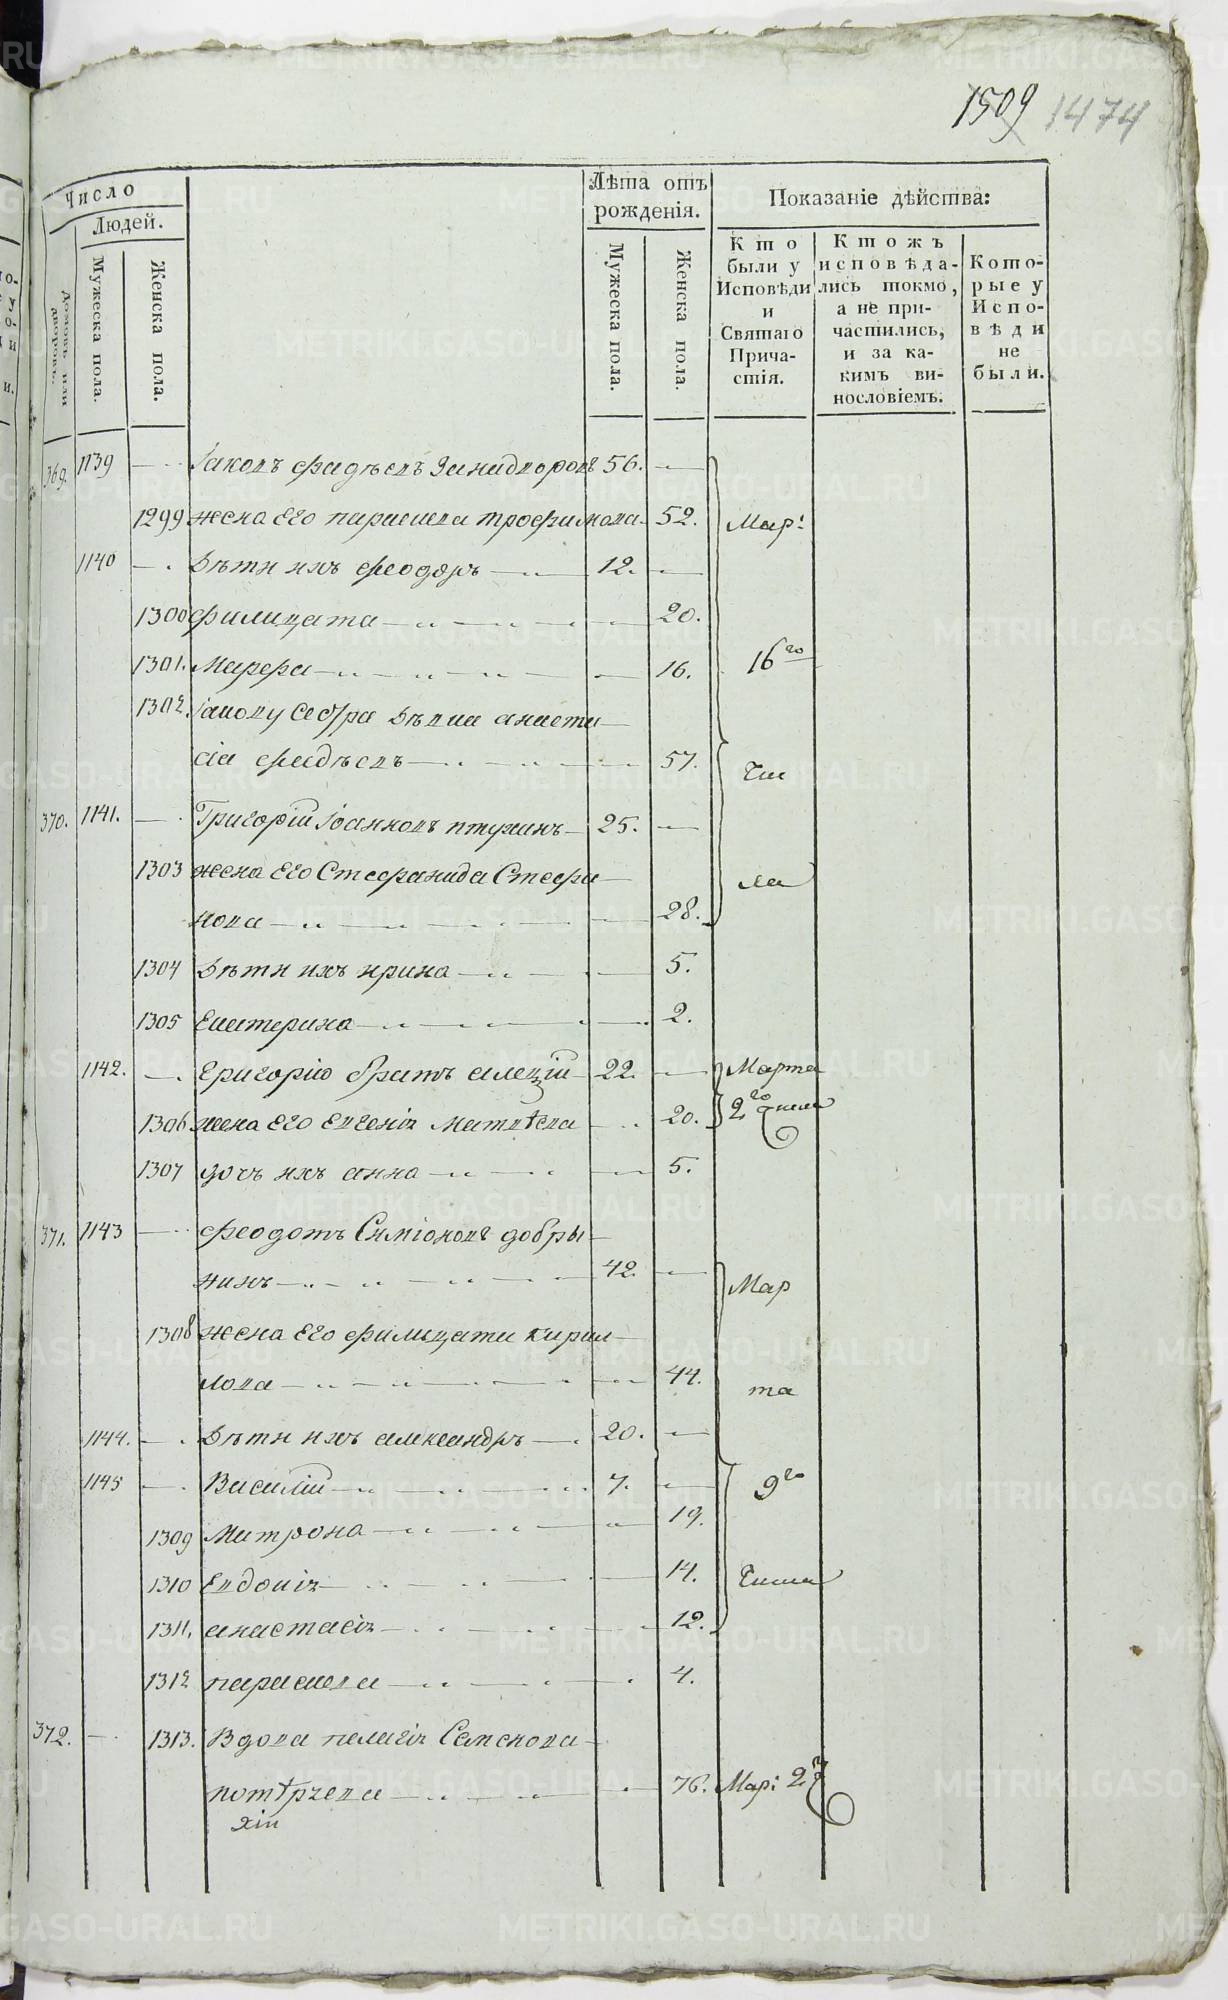 1509 1474
Число
Людей.
Домовъ или дворовъ.
Мужеска пола.
Женска пола.
Лѣта отъ рожденія.
Мужеска пола.
Женска пола.
Показаніе дѣйства:
Кто были у Исповѣди и Святаго Причастія.
Ктожъ исповѣдались токмо, а не причастились, и за какимъ винословіемъ.
Которые у Исповѣди не были.
369. 1139 Іаковъ фадѣевъ 56.
1299 жена Его параскева трофимова 52. Мар:
1140 Дѣти ихъ феодоръ 12.
1300 филицата 20.
1301. Марфа 16. 16го
1302. Іакову сестра Дѣвка анаста
сіа фадѣева 57. Чи
370. 1141. Григорій Іоанновъ птухинъ 25.
1303 жена Его Стефанида Стефа сла
нова 28.
1304 Дѣти ихъ ирина 5.
1305 Екатерина 2.
1142. Григорію братъ алеѯій 22. Марта
1306 жена Его Евгенія Матвѣева 20. 2го числа
1307 дочь ихъ анна 5.
371. 1143 феодотъ Симіоновъ добры
нинъ 42. Мар
1308 жена Его филицата кирил
лова 44. та
1144. Дѣти ихъ александръ 20.
1145 Василій 7. 9го
1309 Матрона 19.
1310 Евдокія 14. Числа
1311. анастасія 12.
1312 параскева 4.
372. 1313. Вдова пелагія Семенова
76. Мар: 2
хіи